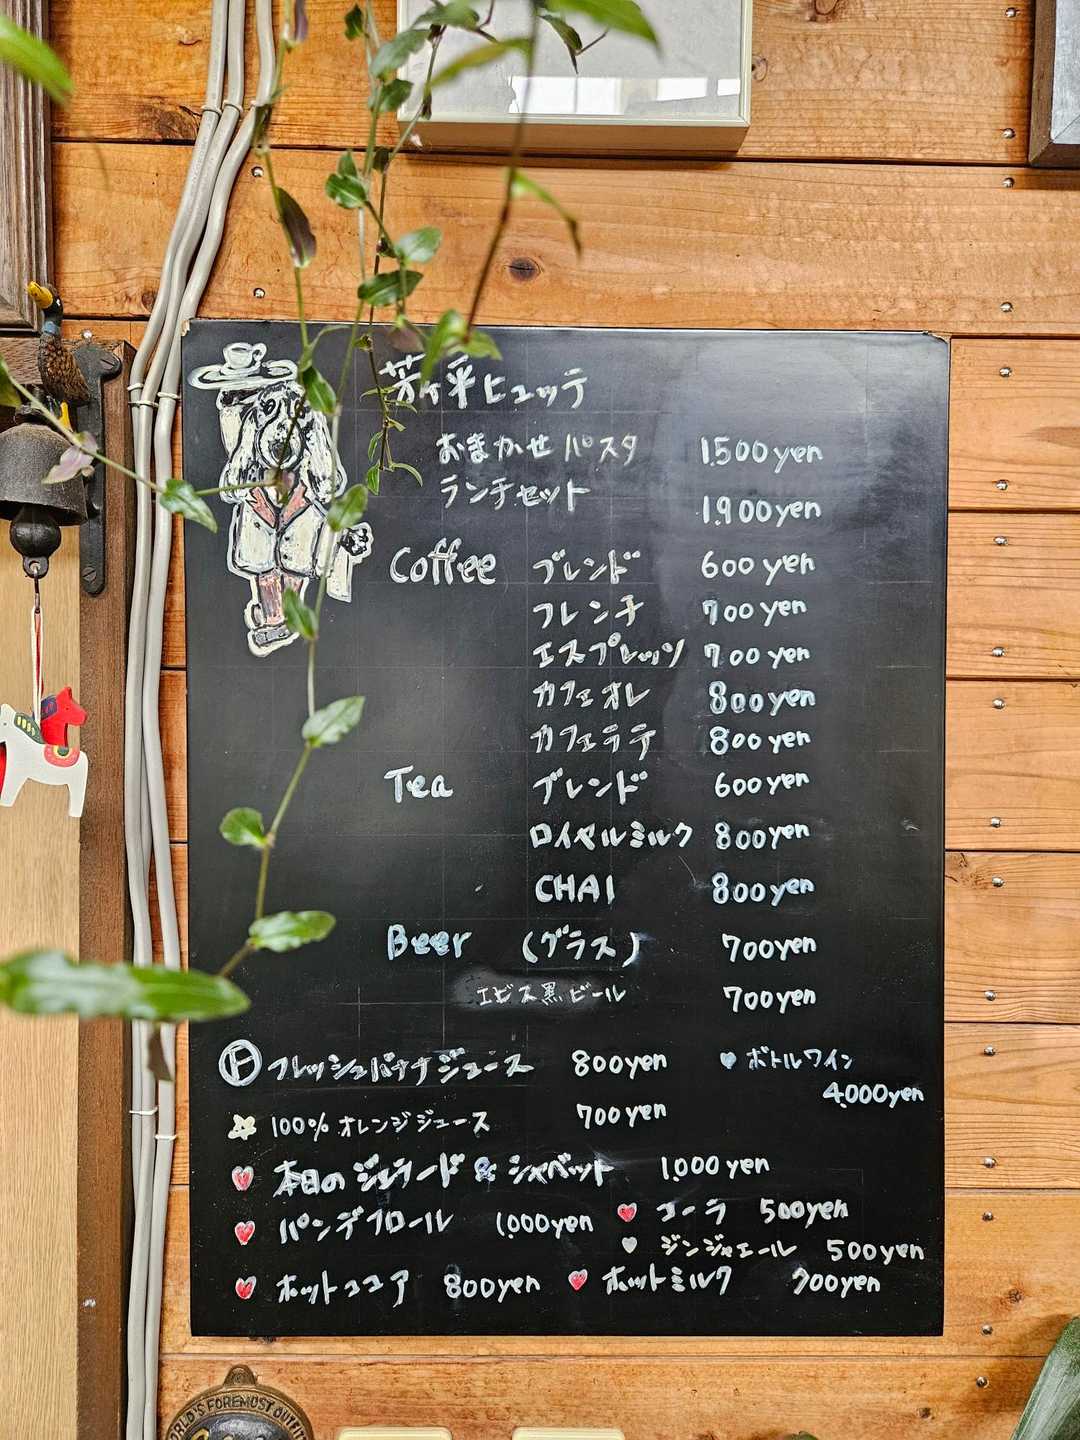 芳ヶ平ヒュッテ
おまかせパスタ 1.500yen
ランチセット 1.900yen
Coffee ブレンド 600yen
フレンチ 700yen
エスプレッソ 700yen
カフェオレ 800yen
カフェラテ 800yen
Tea ブレンド 600yen
ロイヤルミルク 800yen
CHAI 800yen
Beer (グラス) 700yen
エビス黒ビール 700yen
Ⓕ フレッシュバナナジュース 800yen
♥ ボトルワイン
4.000yen
100% オレンジジュース 700yen
♥ 本日のジェラード & シャベット 1.000yen
♥ パンデフロール 1.000yen
♥ コーラ 500yen
♥ ジンジャエール 500yen
♥ ホットココア 800yen
♥ ホットミルク 700yen
WORLD'S FOREMOST OUTFI